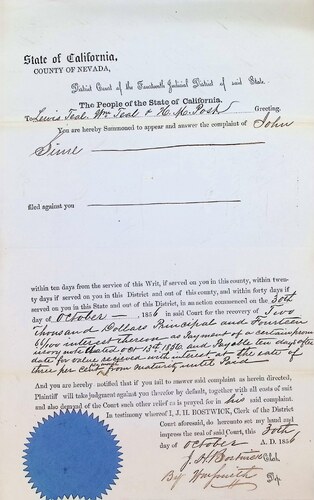 State of California,
COUNTY OF NEVADA,
District Court of the Fourteenth Judicial District of said State.
The People of the State of California.
To Lewis Teal Wm Teal & H. M. Post Greeting.
You are hereby Summoned to appear and answer the complaint of John
filed against you
within ten days from the service of this Writ, if served on you in this county, within twen-
ty days if served on you in this District and out of this county, and within forty days if
served on you in this State and out of this District, in an action commenced on the 30th
day of October 1856 in said Court for the recovery of Two
Thousand Dollars Principal and Fourteen
66/100 interest thereon as Payment of a certain prom
issory note dated Oct 13th 1856 and Payable ten days after
date for value received with interest at the rate of
three per Cent from maturity until Paid
And you are hereby notified that if you fail to answer said complaint as herein directed,
Plaintiff will take judgment against you therefor by default, together with all costs of suit
and also demand of the Court such other relief as is prayed for in his said complaint.
In testimony whereof I, J. H. BOSTWICK, Clerk of the District
Court aforesaid, do hereunto set my hand and
impress the seal of said Court, this 30th
day of October A. D. 1856
J. H. Bostwick Clerk.
By Wm Smith Dep.